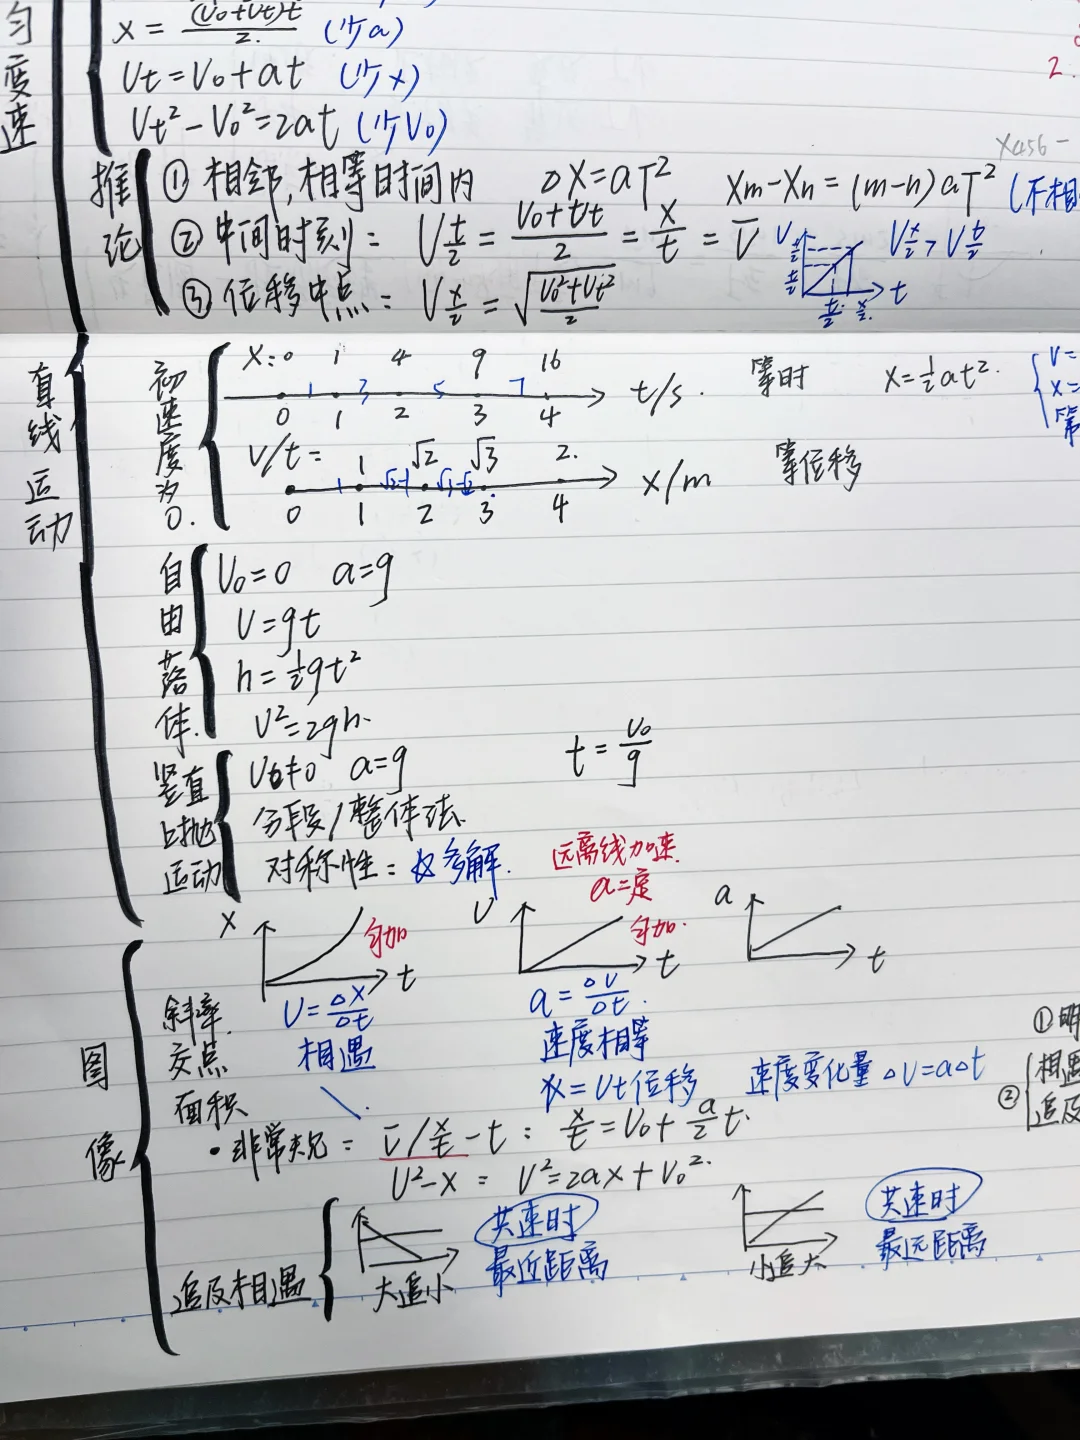 匀变速
x = (V₀+Vt)t/2 (缺a)
Vt=V₀+at (缺x)
Vt²-V₀²=2at (缺V₀)
推论
① 相邻,相等时间内 △X=aT² Xm-Xn=(m-n)aT² (不相
X456-
② 中间时刻: V t/2 = (V₀+Vt)/2 = x/t = V̄
V t V x/2 > V t/2
t/2 x/2
③ 位移中点: V x/2 = √((V₀²+Vt²)/2)
直线运动
初速度为0.
X: 0 1 4 9 16
1 3 5 7 t/s. 等时 X=½at².
0 1 2 3 4
V/t= 1 √2 √3 2.
1 √2-1 √3-√2 x/m 等位移
0 1 2 3. 4
V=
x=
第
自由落体.
V₀=0 a=g
V=gt
h=½gt²
V²=2gh.
竖直上抛运动
V₀≠0 a=g t=V₀/g
分段/整体法.
对称性: 多解. 远离线加速.
a=定
X t 匀加
V t 匀加.
a t
图像
斜率. V=△X/△t a=△V/△t.
交点 相遇 速度相等
面积 \. X=Vt位移 速度变化量 △V=a△t
·非常规: V̄/x/t-t: x/t=V₀+a/2 t.
V²-X: V²=2ax+V₀².
追及相遇
大追小 共速时 最近距离
小追大 共速时 最远距离
①明
② 相遇
追及
2.